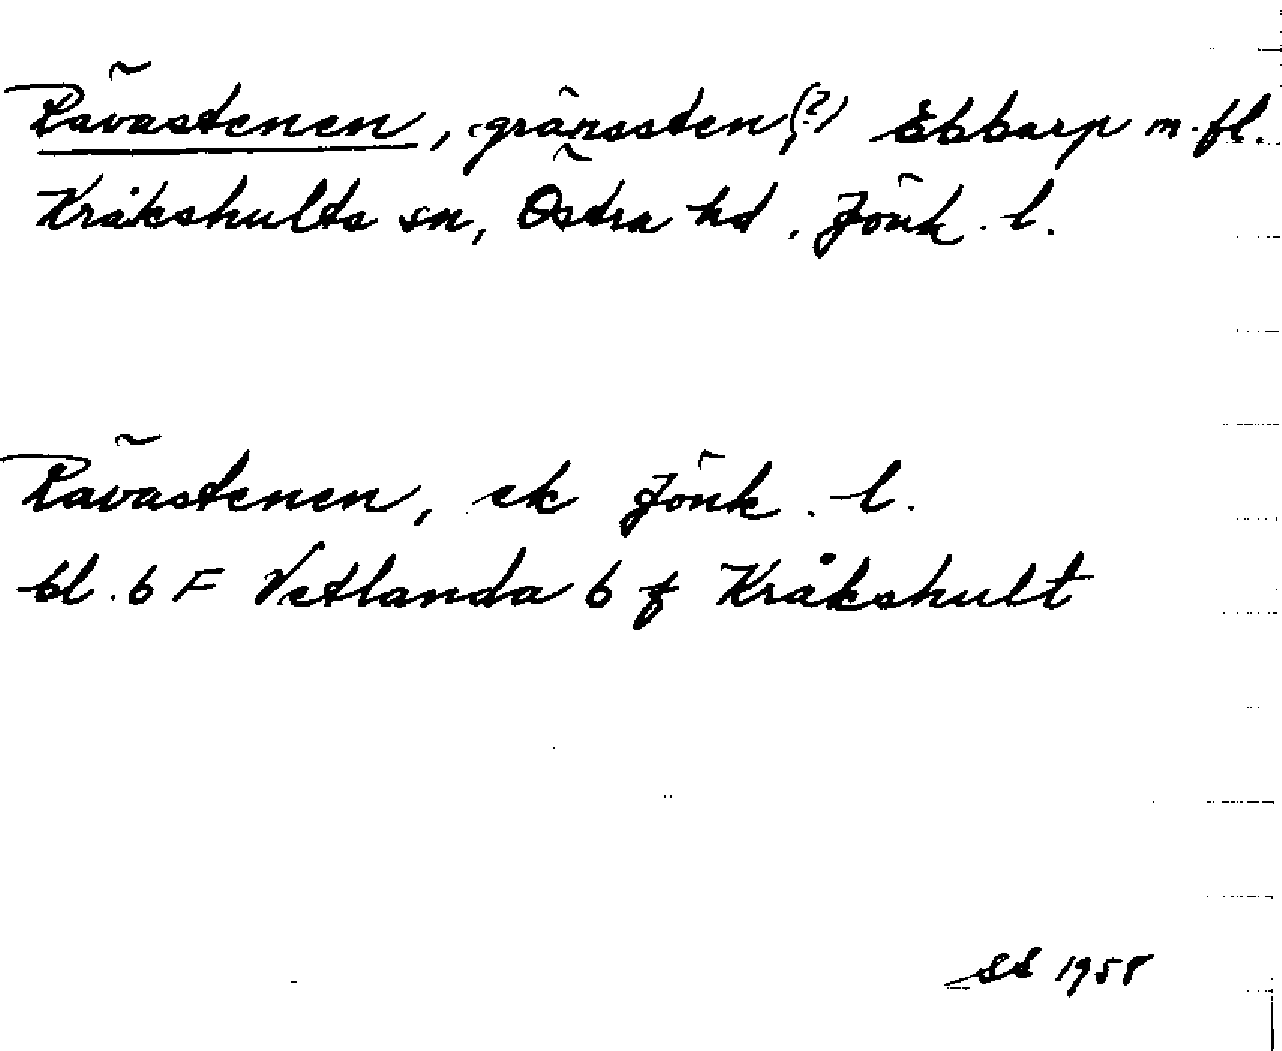 Rävastenen, gränssten(?) Ebbarp m.fl.
Kråkshults sn, Östra hd. Jönk. l.
Rävastenen, ek Jönk. l.
bl. 6 F Vetlanda 6 f Kråkshult
SS 1958